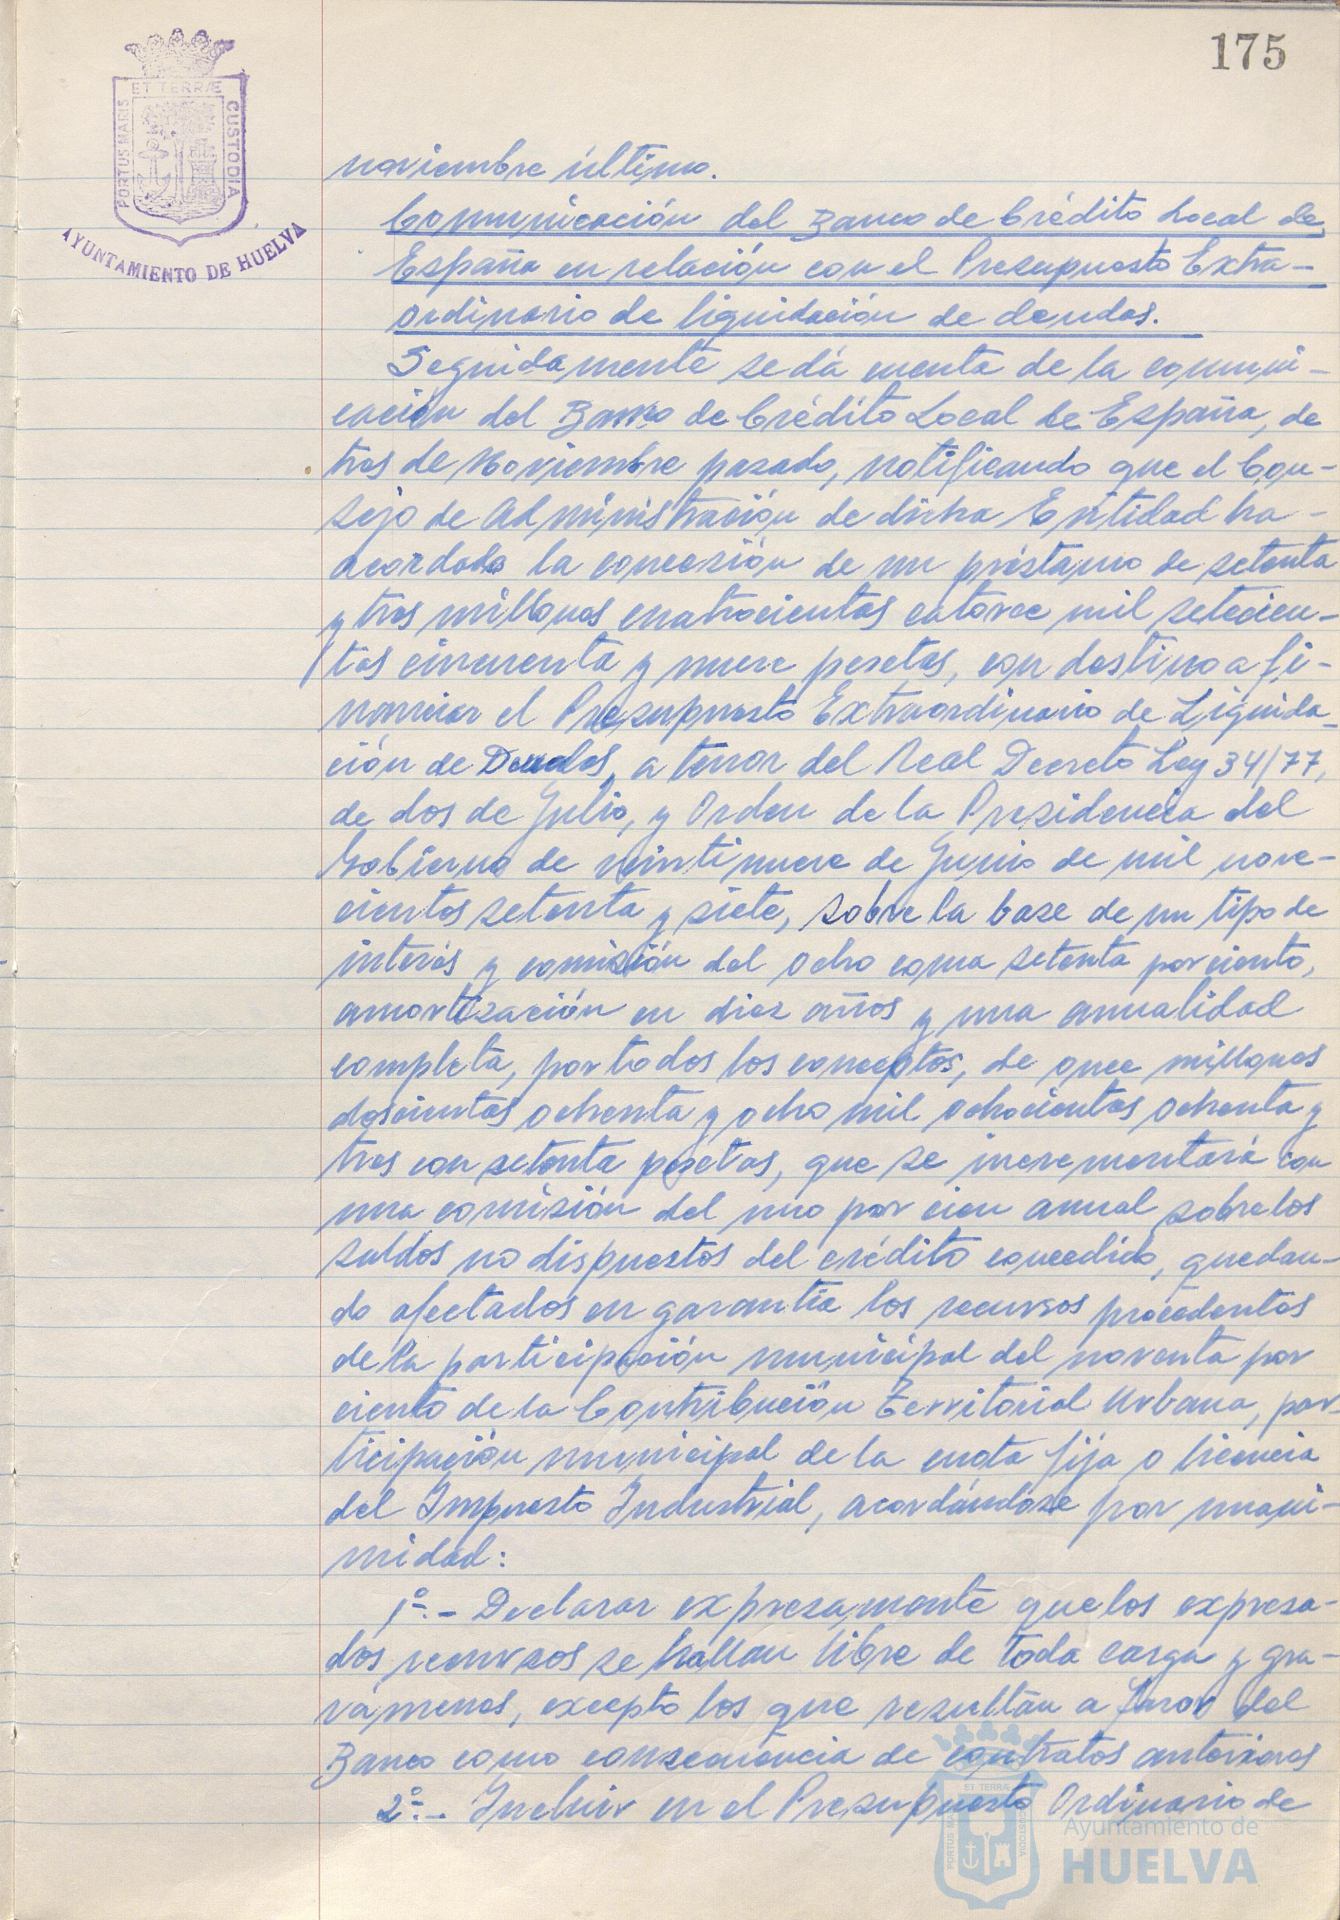 175
ET TERRÆ
PORTUS MARIS
CUSTODIA
AYUNTAMIENTO DE HUELVA
noviembre último.
Comunicación del Banco de Crédito Local de
España en relación con el Presupuesto Extra-
ordinario de liquidación de deudas.
Seguidamente se dá cuenta de la comuni-
cación del Banco de Crédito Local de España, de
tres de Noviembre pasado, notificando que el Con-
sejo de Administración de dicha Entidad ha-
acordado la concesión de un préstamo de setenta
y tres millones cuatrocientas catorce mil setecien-
tas cincuenta y nueve pesetas, con destino a fi-
nanciar el Presupuesto Extraordinario de Liquida-
ción de Deudas, a tenor del Real Decreto Ley 34/77,
de dos de Julio, y Orden de la Presidencia del
Gobierno de veintinueve de Junio de mil nove-
cientos setenta y siete, sobre la base de un tipo de
interés y comisión del ocho coma setenta por ciento,
amortización en diez años y una anualidad
completa, por todos los conceptos, de once millones
doscientas ochenta y ocho mil ochocientas ochenta y
tres con setenta pesetas, que se incrementará con
una comisión del uno por cien anual sobre los
saldos no dispuestos del crédito concedido, quedan-
do afectados en garantía los recursos procedentes
de la participación municipal del noventa por
ciento de la Contribución Territorial Urbana, par-
ticipación municipal de la cuota fija o licencia
del Impuesto Industrial, acordándose por unani-
midad:
1º.- Declarar expresamente que los expresa-
dos recursos se hallan libre de toda carga y gra-
vámenes, excepto los que resultan a favor del
Banco como consecuencia de contratos anteriores
2º.- Incluir en el Presupuesto Ordinario de
ET TERRÆ
PORTUS MARIS
CUSTODIA
Ayuntamiento de
HUELVA